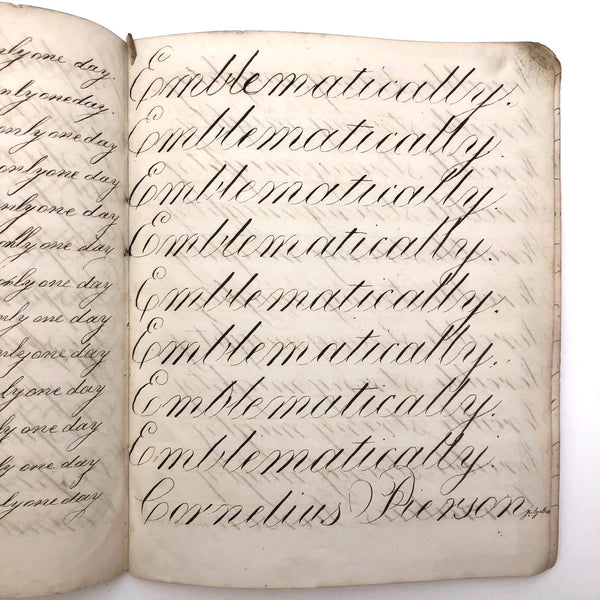 only one day.
only one day.
only one day
only one day
only one day
only one day
only one day
only one day
only one day
only one day
only one day
only one day
only one day
Emblematically.
Emblematically.
Emblematically.
Emblematically.
Emblematically.
Emblematically.
Emblematically.
Emblematically.
Cornelius Pierson